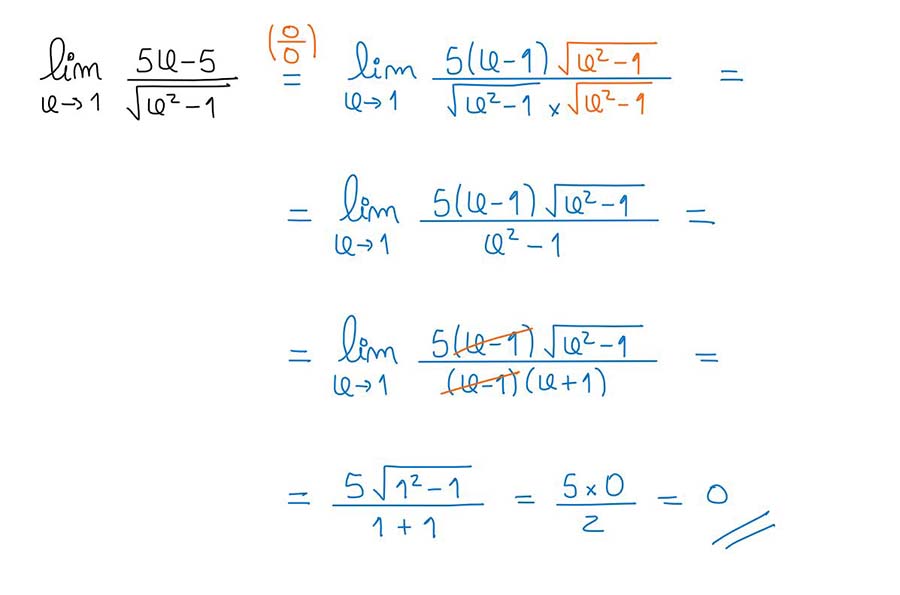 lim u→1 (5u-5)/(√(u²-1)) (0/0) = lim u→1 (5(u-1)√(u²-1))/(√(u²-1) × √(u²-1)) =
= lim u→1 (5(u-1)√(u²-1))/(u²-1) =
= lim u→1 (5(u-1)√(u²-1))/((u-1)(u+1)) =
= (5√(1²-1))/(1+1) = (5×0)/2 = 0